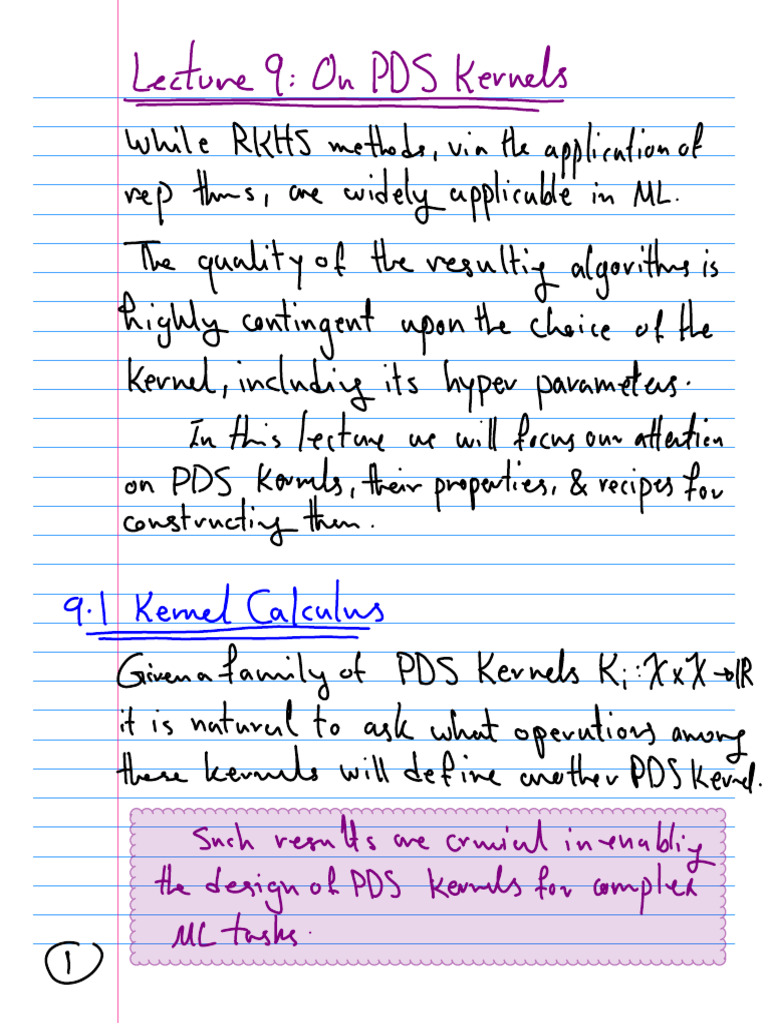 Lecture 9: On PDS Kernels
While RKHS methods, via the application of
rep thms, are widely applicable in ML.
The quality of the resultig algorithms is
highly contingent upon the choice of the
Kernel, including its hyper parameters.
In this lecture we will focus our attention
on PDS Kernels, their properties, & recipes for
constructing them.
9.1 Kernel Calculus
Given a family of PDS Kernels Kᵢ : X × X → ℝ
it is natural to ask what operations among
these kernels will define another PDS Kernel.
Such results are crucial in enablig
the design of PDS Kernels for complex
ML tasks.
1